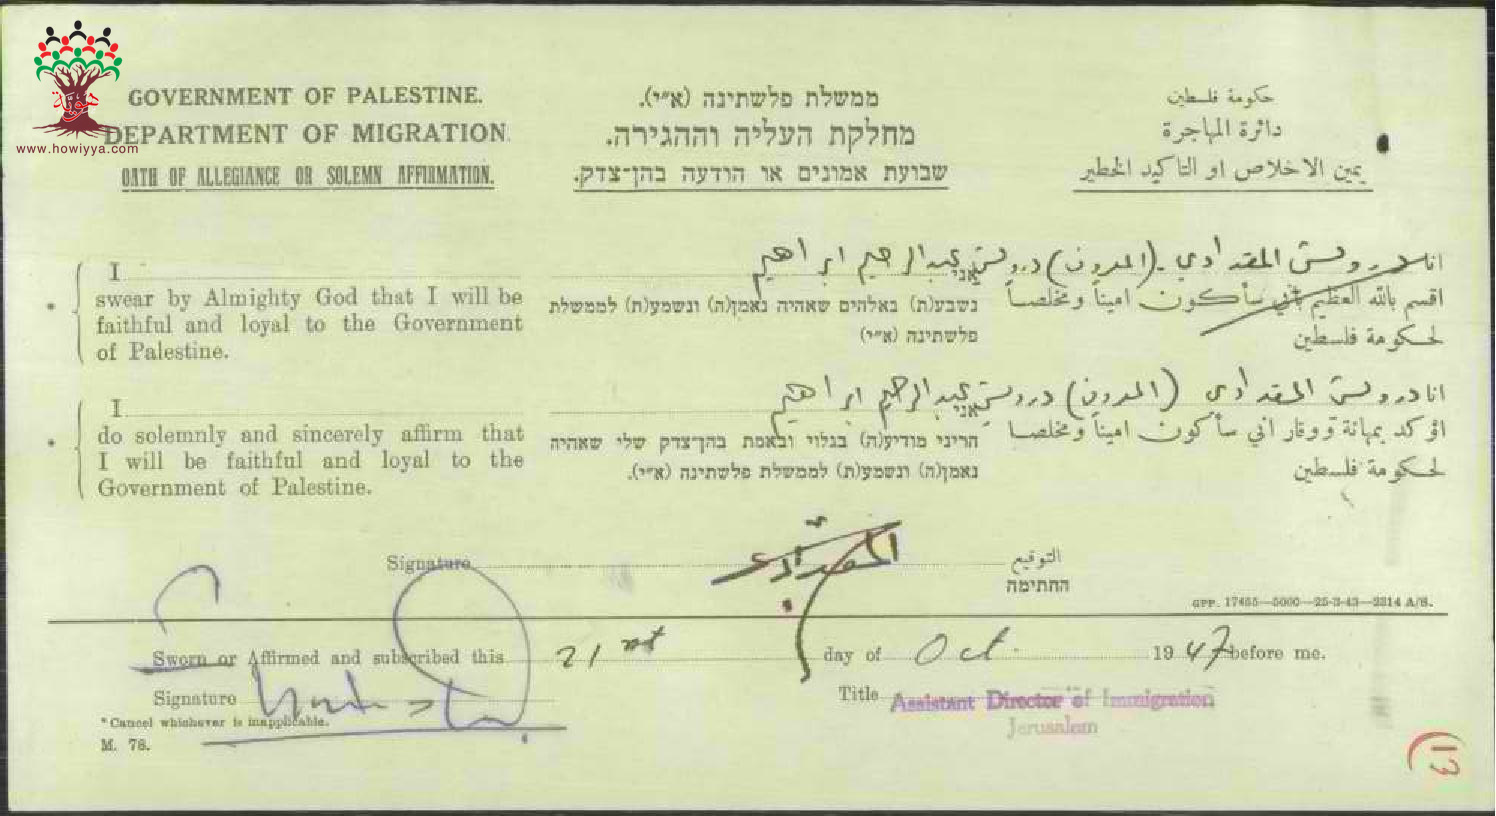 هوية
www.howiyya.com
GOVERNMENT OF PALESTINE.
DEPARTMENT OF MIGRATION.
OATH OF ALLEGIANCE OR SOLEMN AFFIRMATION.
ממשלת פלשתינה (א״י).
מחלקת העליה וההגירה.
שבועת אמונים או הודעה בהן־צדק.
حكومة فلسطين
دائرة المهاجرة
يمين الاخلاص او التاكيد الخطير
* I
swear by Almighty God that I will be
faithful and loyal to the Government
of Palestine.
אני
נשבע(ת) באלהים שאהיה נאמן(ה) ונשמע(ת) לממשלת
פלשתינה (א״י)
انا درويش المقدادي (المدون) درويش عبد الرحيم ابراهيم
اقسم بالله العظيم بأني سأكون اميناً ومخلصاً
لحكومة فلسطين
* I
do solemnly and sincerely affirm that
I will be faithful and loyal to the
Government of Palestine.
אני
הריני מודיע(ה) בגלוי ובאמת בהן־צדק שלי שאהיה
נאמן(ה) ונשמע(ת) לממשלת פלשתינה (א״י).
انا درويش المقدادي (المدون) درويش عبد الرحيم ابراهيم
اؤكد بمهانة ووقار اني سأكون اميناً ومخلصاً
لحكومة فلسطين
Signature المقدادي التوقيع
החתימה
GPP. 17465—5000—25-3-43—2314 A/B.
Sworn or Affirmed and subscribed this 21st day of Oct. 1947 before me.
Signature
Title Assistant Director of Immigration
Jerusalem
* Cancel whichever is inapplicable.
M. 78.